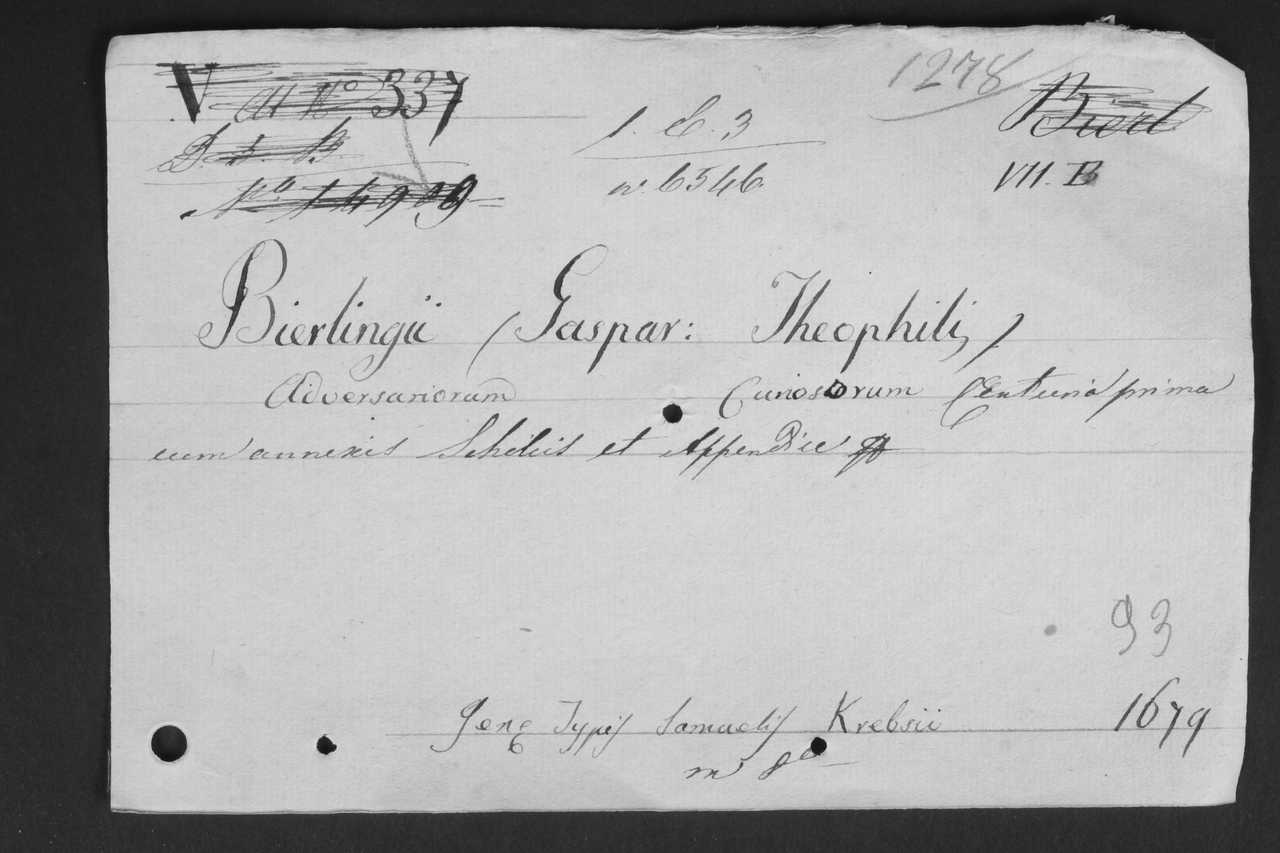 V
All N° 337
1278
Bierl
1. E. 3
D. t. B.
n. 6546
VII. B
N° 14909
Bierlingii (Gaspar: Theophili,)
Adversariorum Curiosorum Centuria prima
cum annexis Scholiis et Appendice
93
Jenę Typis Samuelis Krebsii 1679
in 8°